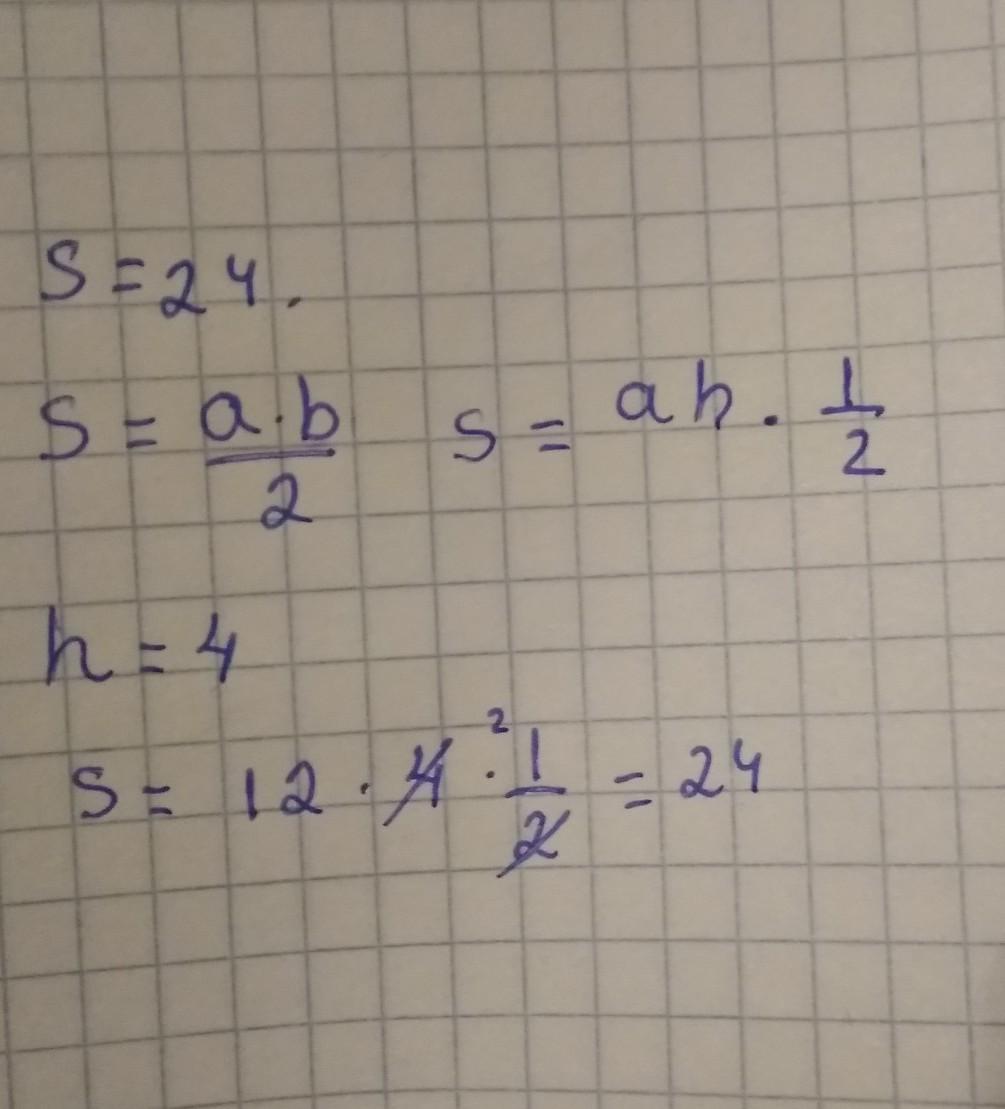 S = 24.
S = a·b/2 S = ah · 1/2
h = 4
S = 12 · 4 ² · 1/2 = 24